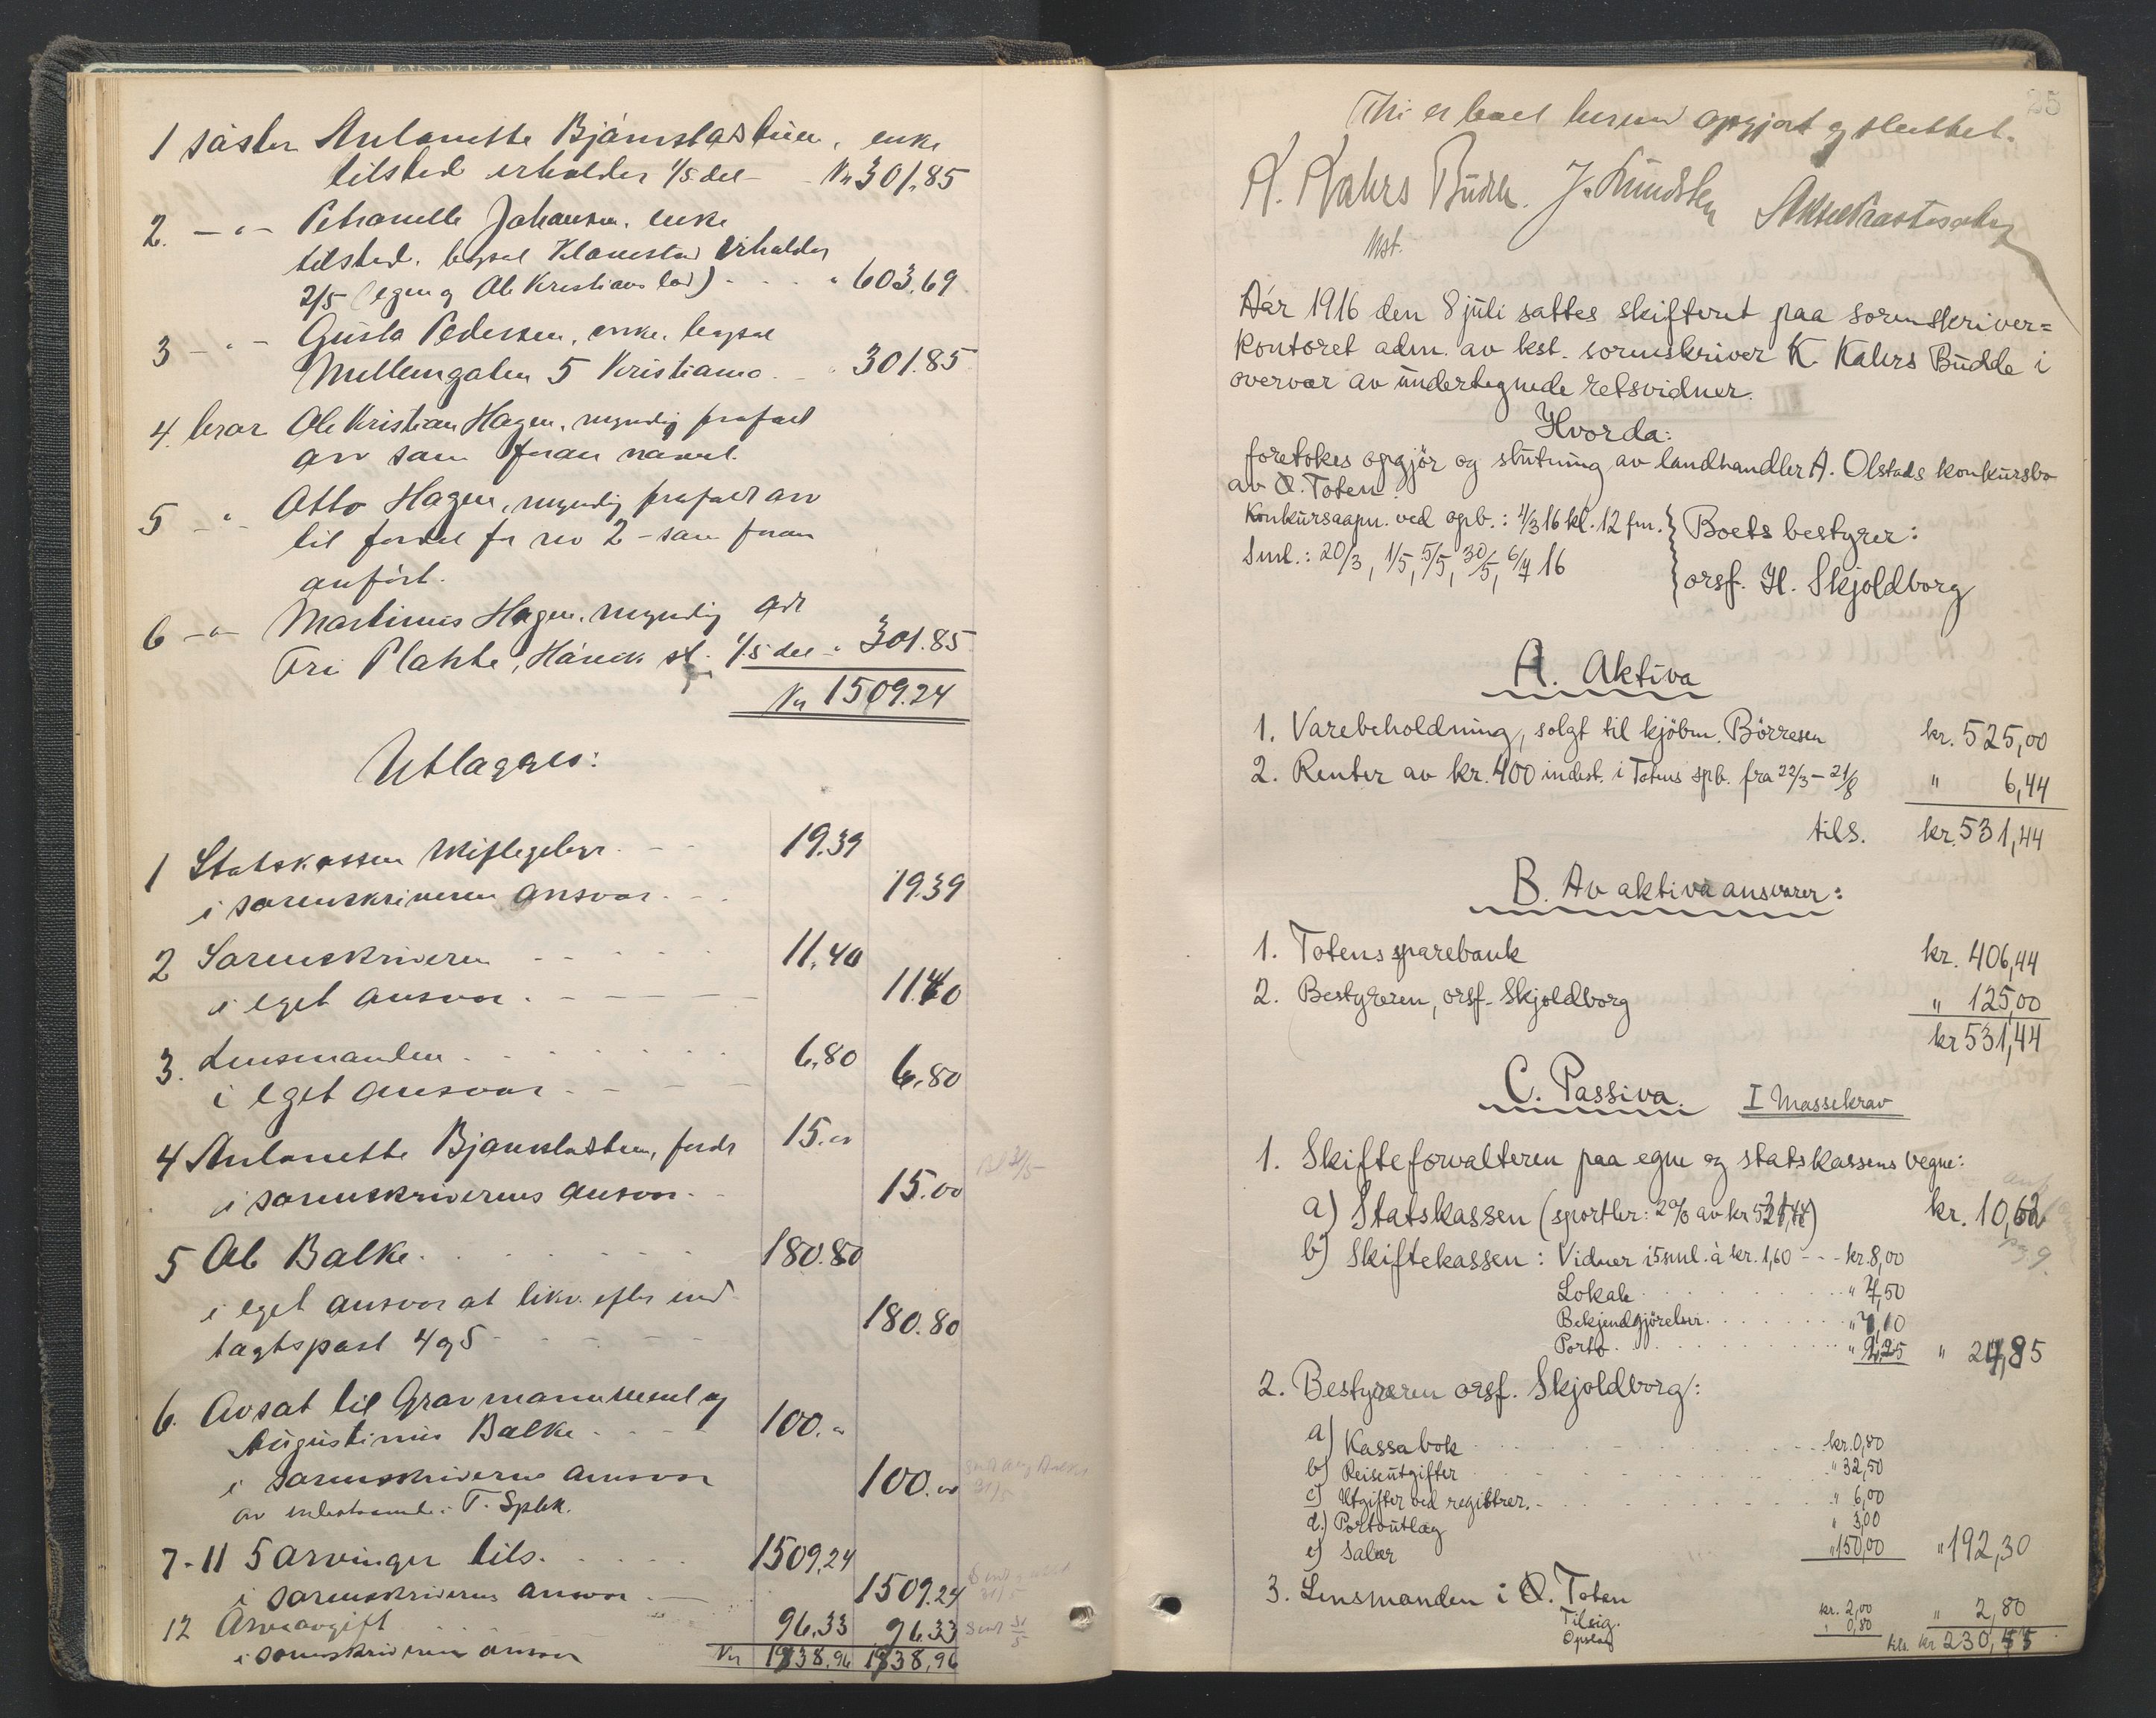 1 søster Antonette Bjørnstadstuen, enke
tilsted erholder 1/5 del - Kr 301.85
2. - " - Petronelle Johansen, enke
tilsted. bopæl erholder
2/5 (egen og Ole Kristians lod) " 603.69
3 - " - Gusta Pedersen, enke, bopæl
Mellemgaten 5 Kristiania " 301.85
4. bror Ole Kristian Hagen, myndig frafaldt
arv som foran nævnt.
5 - " - Otto Hagen, myndig frafaldt arv
til fordel for no 2 - som foran
anført.
6 - " - Martinus Hagen, myndig adr
st. 1/5 del " 301.85
Kr 1509.24
Utlægges:
1 Statskassen skiftegebyr 19.39
i sorenskriveren ansvar 19.39
2 Sorenskriveren 11.40
i eget ansvar 11.40
3. Lensmanden 6.80
i eget ansvar 6.80
4 Antonette Bjørnstadstuen, fordr 15.00
i sorenskriverens ansvar 15.00
5 Ole Balke 180.80
i eget ansvar at likv. efter ind
tægtspost 4 og 5 180.80
6. Avsat til Gravmonument og
Augustinus Balke 100.-
i sorenskriverens ansvar 100.00
av T. Spbk.
7-11 5 arvinger tils. 1509,24
i sorenskriverens ansvar 1509.24
12 Arveavgift 96.33
i sorenskriverens ansvar 96.33
Kr 1838,96 1838,96
25
Thi er boet herved opgjort og sluttet.
K. Kahrs Budde. J. Knudsen
kst.
Aar 1916 den 8 juli sattes skifteret paa sorenskriver=
kontoret adm. av kst. sorenskriver K. Kahrs Budde i
overvær av undertegnede retsvidner.
Hvorda:
foretokes opgjör og slutning av landhandler A. Olstads konkursbo
av Ø. Toten.
Konkursaapn. ved opb.: 4/3 16 kl. 12 fm. } Boets bestyrer:
Sml.: 20/3, 1/5, 5/5, 30/5, 6/7 16 } orsf. H. Skjoldborg
A. Aktiva
1. Varebeholdning, solgt til kjöbm. Börresen kr. 525,00
2. Renter av kr. 400 indest. i Totens spb. fra 22/3 - 21/8 " 6,44
tils. kr. 531,44
B. Av aktiva ansvarer:
1. Totens sparebank kr. 406,44
2. Bestyreren, orsf. Skjoldborg " 125,00
kr 531,44
C. Passiva. I Massekrav
1. Skifteforvalteren paa egne og statskassens vegne:
a) Statskassen (sportler: 2% av kr 531,44) kr. 10,62
b) Skiftekassen: Vidner i 5 sml. à kr. 1,60 - - - kr. 8,00
Lokale " 7,50
Bekjendgjörelser "
Porto " " 24,85
2. Bestyreren orsf. Skjoldborg:
a) Kassabok kr. 0,80
b) Reiseutgifter " 32,50
c) Utgifter ved registrer. " 6,00
d.) Portoutlæg " 3,00
e) Salær " 150,00 " 192,30
3. Lensmanden i Ø. Toten
Tilsig. kr. 2,00 " 2,80
Opslag " 0,80 tils. kr 230,